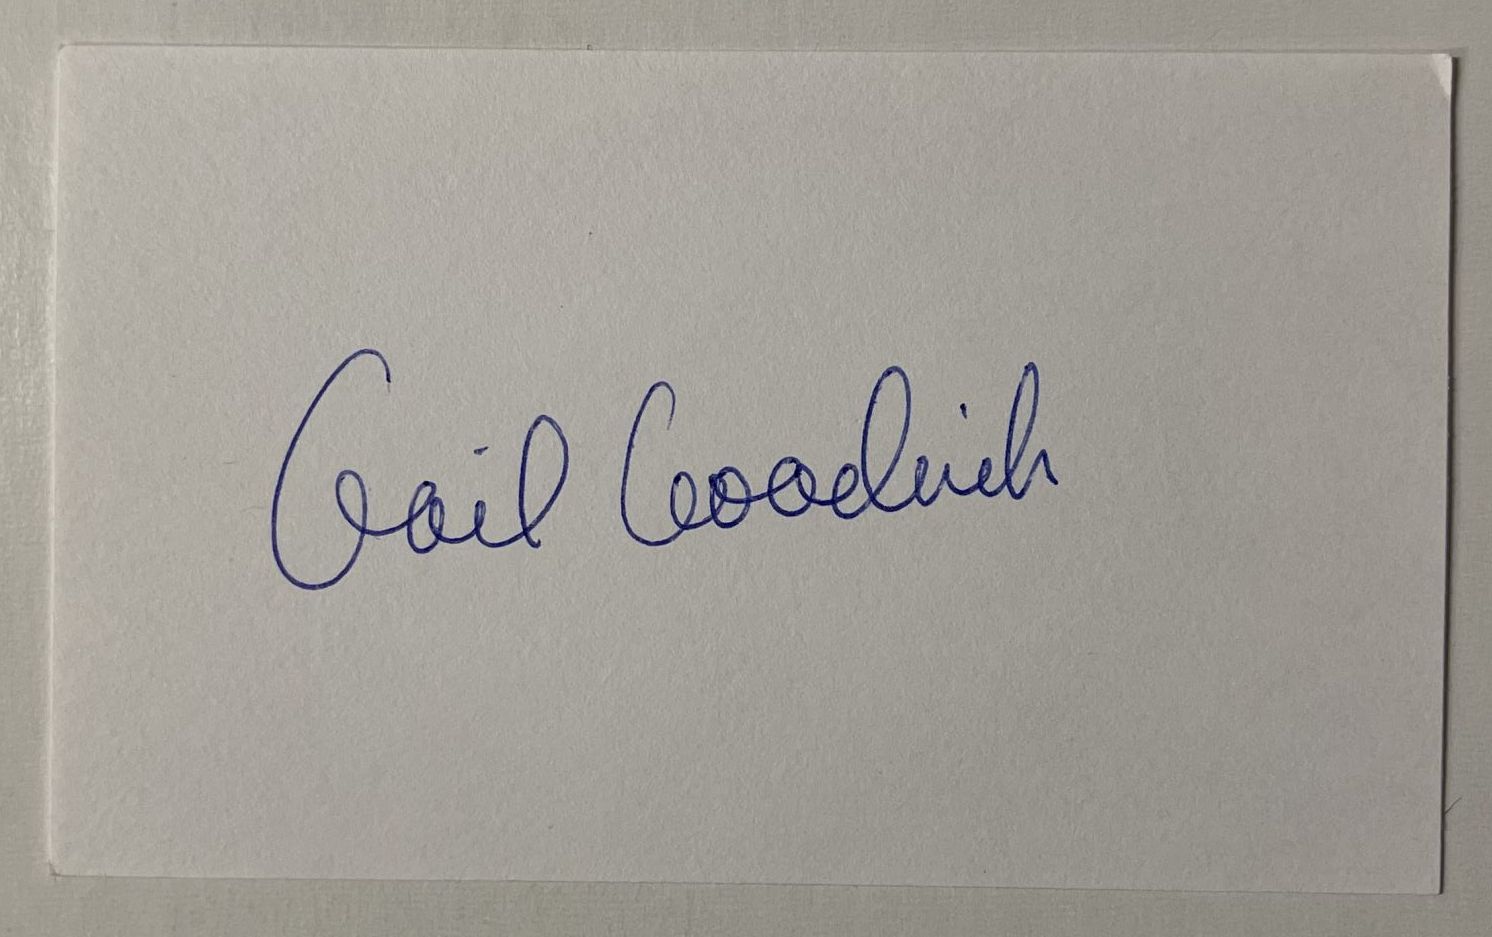 Gail Goodrich